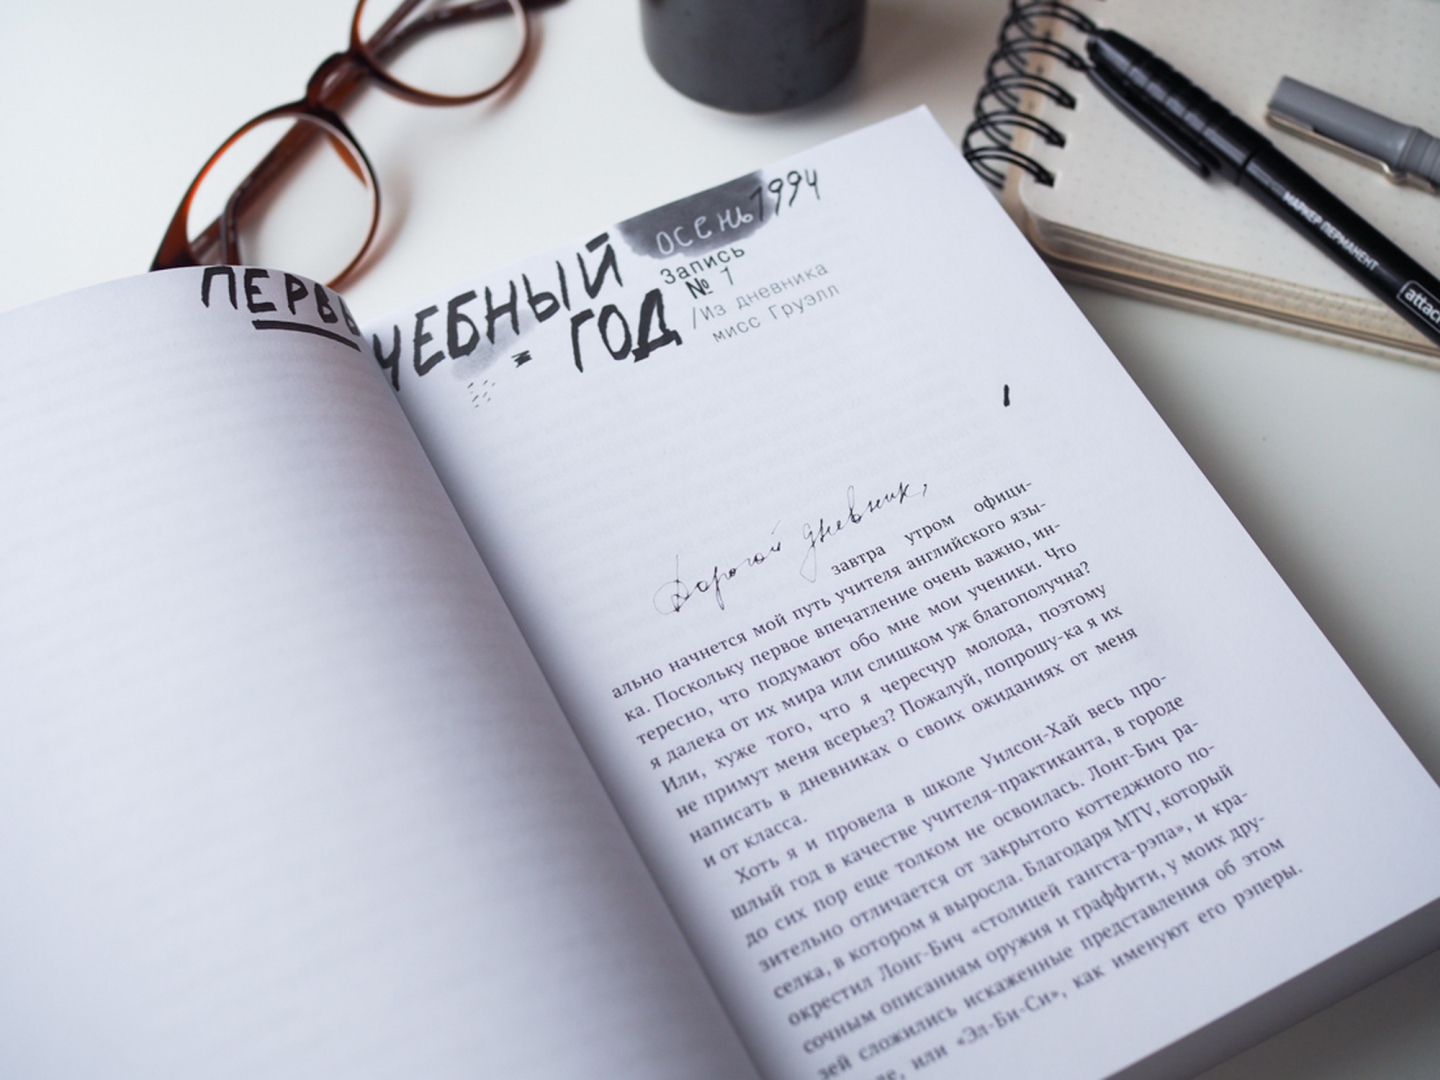 ПЕРВЫ
УЧЕБНЫЙ
ГОД
ОСЕНЬ 1994
Запись
№ 1
/Из дневника
мисс Груэлл
Дорогой дневник,
завтра утром офици-
ально начнется мой путь учителя английского язы-
ка. Поскольку первое впечатление очень важно, ин-
тересно, что подумают обо мне мои ученики. Что
я далека от их мира или слишком уж благополучна?
Или, хуже того, что я чересчур молода, поэтому
не примут меня всерьез? Пожалуй, попрошу-ка я их
написать в дневниках о своих ожиданиях от меня
и от класса.
Хоть я и провела в школе Уилсон-Хай весь про-
шлый год в качестве учителя-практиканта, в городе
до сих пор еще толком не освоилась. Лонг-Бич ра-
зительно отличается от закрытого коттеджного по-
селка, в котором я выросла. Благодаря MTV, который
окрестил Лонг-Бич «столицей гангста-рэпа», и кра-
сочным описаниям оружия и граффити, у моих дру-
зей сложились искаженные представления об этом
де, или «Эл-Би-Си», как именуют его рэперы.
МАРКЕР ПЕРМАНЕНТ
attac